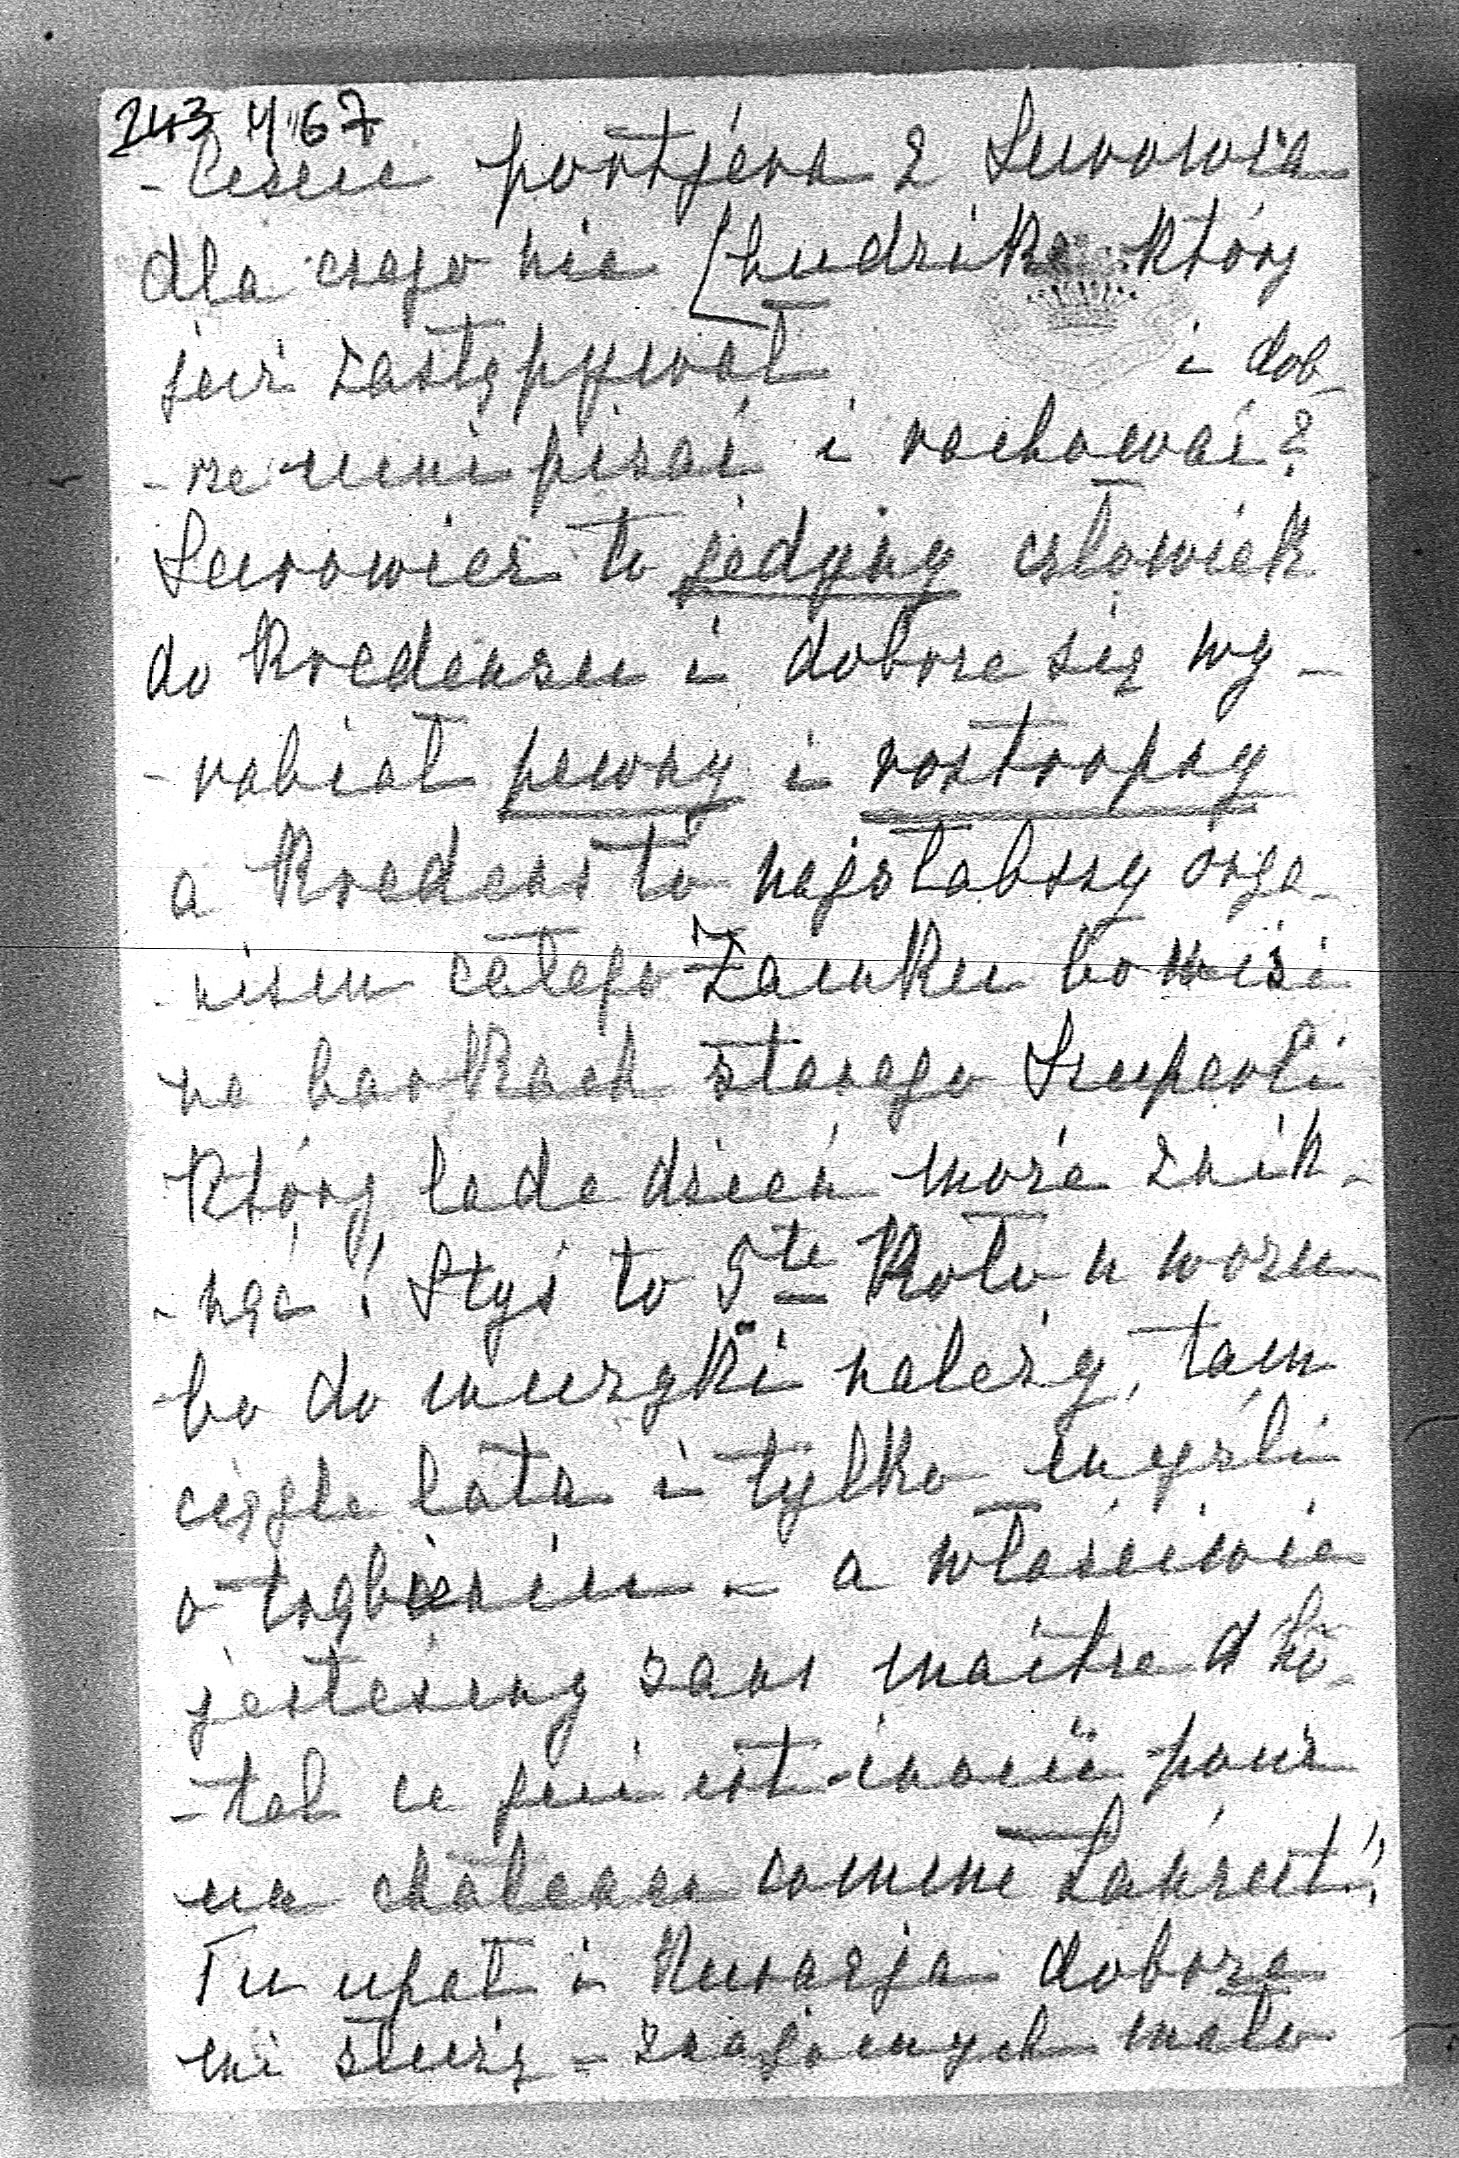 243 4 67
-cscie portjera z Surowca
dla czego nie Chudzika który
już zastępywał i dob-
-rze umi pisać i rachować?
Surowiec to jedyny człowiek
do Kredensu i dobrze się wy-
-rabiał pewny i roztropny
a Kredens to najsłabszy orga-
-nism całego Zamku bo wisi
na barkach starego Szuperli
Który lada dzień może znik-
-nąć! Styś to 5te Koło u wozu
bo do muzyki należy, tam
ciągle lata i tylko myśli
o trąbieniu - a właściwie
jesteśmy sans maître d'hô-
-tel ce qui est inouï pour
un château comme Łańcut!
Tu upał i Kuracja dobrze
mi służy - znajomych mało